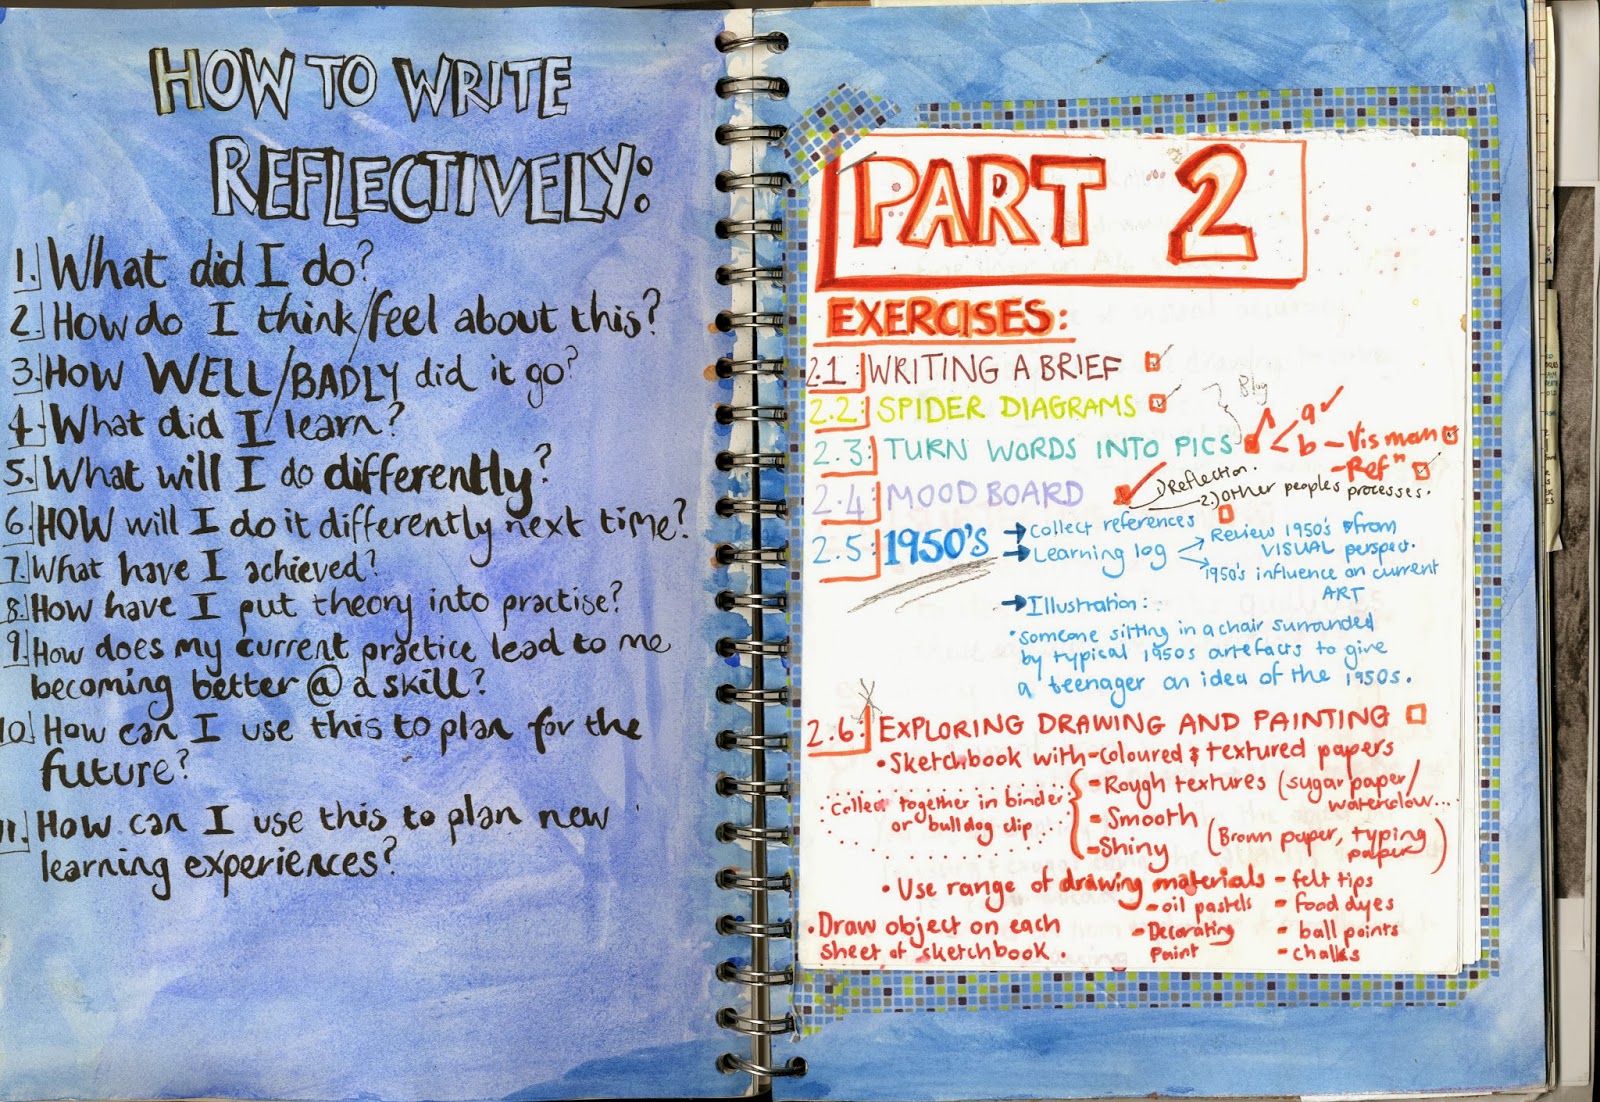 HOW TO WRITE
REFLECTIVELY:
1. What did I do?
2. How do I think/feel about this?
3. How WELL/BADLY did it go?
4. What did I learn?
5. What will I do differently?
6. HOW will I do it differently next time?
7. What have I achieved?
8. How have I put theory into practise?
9. How does my current practice lead to me
becoming better @ a skill?
10. How can I use this to plan for the
future?
11. How can I use this to plan new
learning experiences?
PART 2
EXERCISES:
2.1: WRITING A BRIEF
2.2: SPIDER DIAGRAMS
Blog
2.3: TURN WORDS INTO PICS
a
b - Vis man
- Refⁿ
2.4: MOOD BOARD
1) Reflection.
2.) Other peoples processes.
2.5: 1950's
→ Collect references
→ Learning log
Review 1950's from
VISUAL perspect.
1950's influence on current
ART
→ Illustration:
• someone sitting in a chair surrounded
by typical 1950s artefacts to give
a teenager an idea of the 1950s.
2.6: EXPLORING DRAWING AND PAINTING
• Sketchbook with - coloured & textured papers
Collect together in binder
or bulldog clip...
- Rough textures (sugar paper/
waterclour...
- Smooth
- Shiny (Brown paper, typing
paper)
• Use range of drawing materials - felt tips
- oil pastels - food dyes
- Decorating - ball points
paint - chalks
• Draw object on each
sheet of sketchbook.